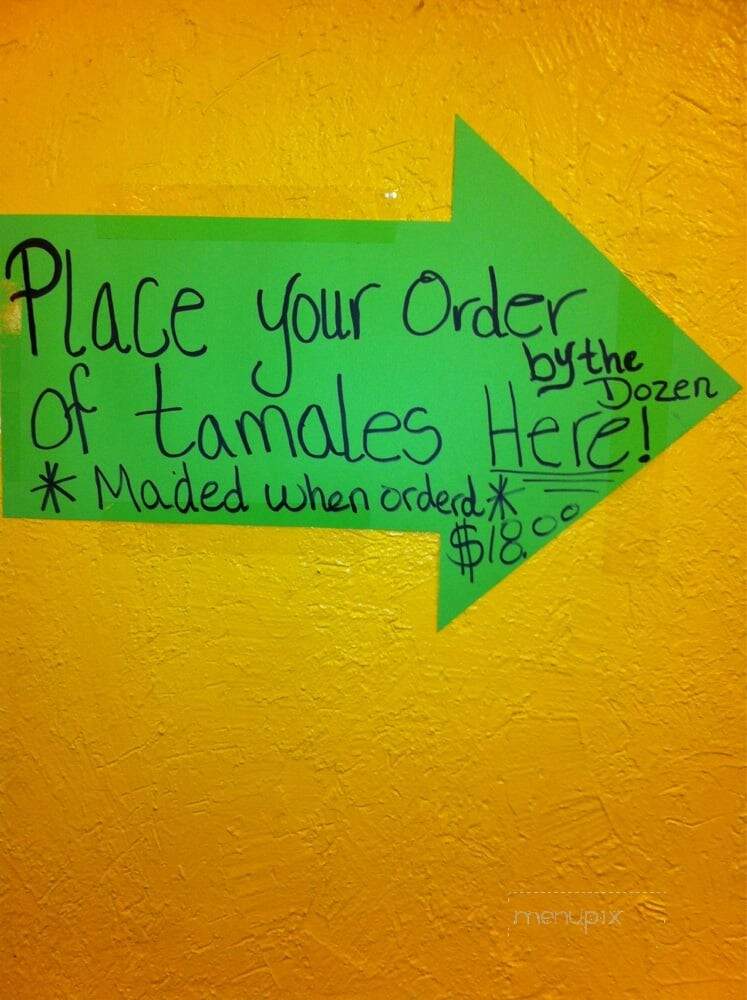 Place your Order
by the
Dozen
of tamales Here!
* Maded when orderd *
$18.00
menupix